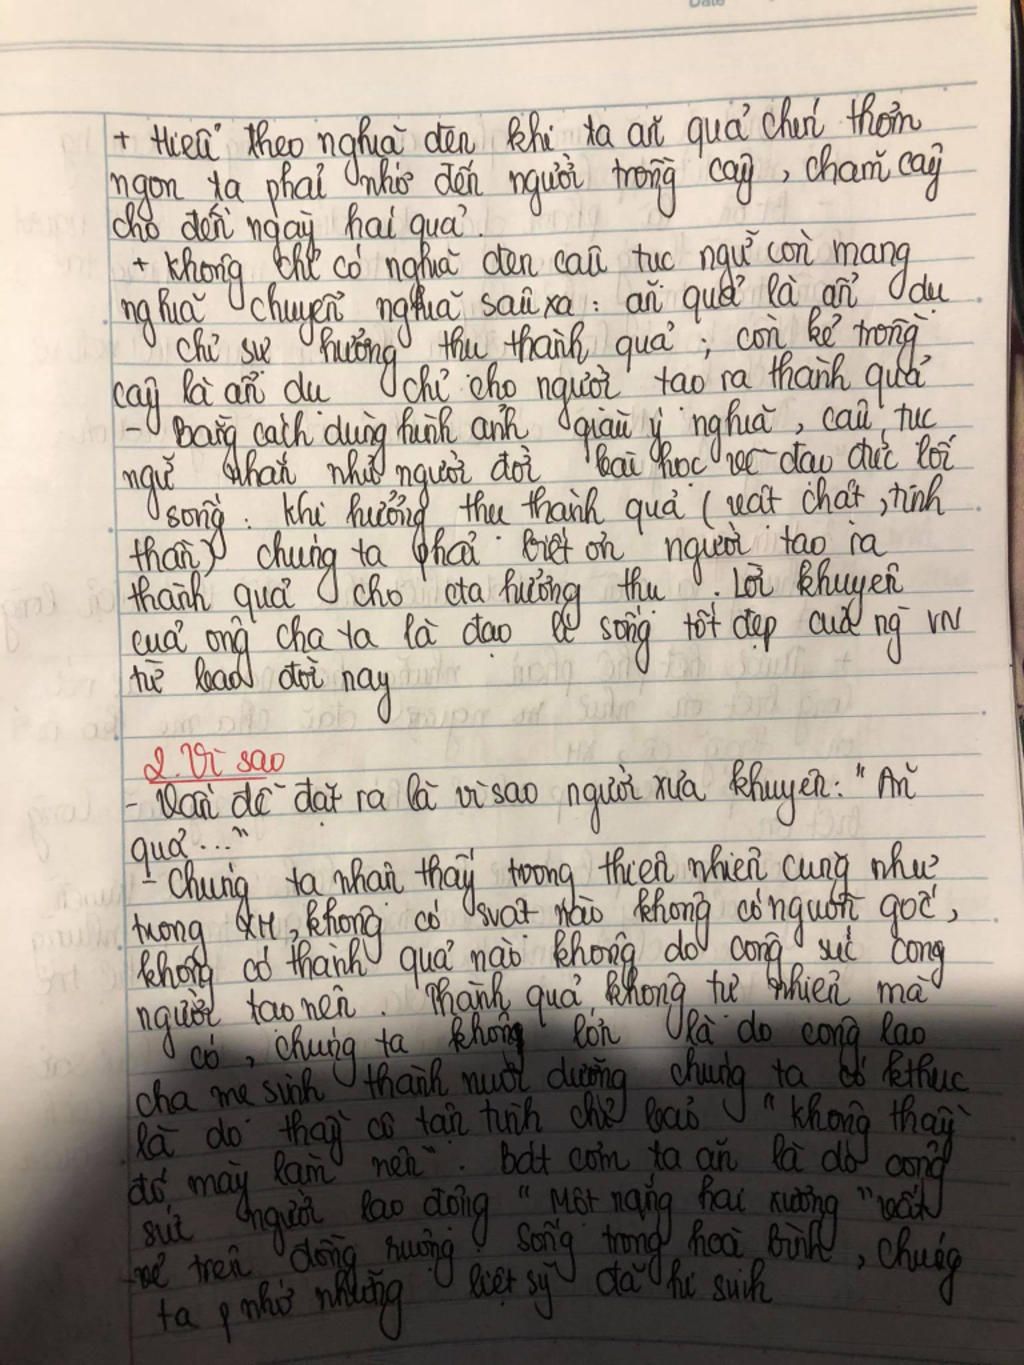 Date
+ Hiểu theo nghĩa đen khi ta ăn quả chín thơm
ngon ta phải nhớ đến người trồng cây, chăm cây
cho đến ngày hái quả.
+ không chỉ có nghĩa đen câu tục ngữ còn mang
nghĩa chuyển nghĩa sâu xa: ăn quả là ẩn dụ
chỉ sự hưởng thụ thành quả; còn kẻ trồng
cây là ẩn dụ chỉ cho người tạo ra thành quả
- Bằng cách dùng hình ảnh giàu ý nghĩa, câu tục
ngữ nhắn nhủ người đời bài học về đạo đức lối
sống. Khi hưởng thụ thành quả (vất chất, tinh
thần) chúng ta phải biết ơn người tạo ra
thành quả cho cta hưởng thụ. Lời khuyên
của ông cha ta là đạo lí sống tốt đẹp của ng VN
từ bao đời nay
2. Vì sao
- Vấn đề đặt ra là vì sao người xưa khuyên: "Ăn
quả..."
- Chúng ta nhận thấy trong thiên nhiên cũng như
trong XH, không có svật nào không có nguồn gốc,
không có thành quả nào không do công sức cong
người tạo nên. Thành quả không tự nhiên mà
có, chúng ta không lớn là do công lao
cha mẹ sinh thành nuôi dưỡng chúng ta có kthức
là do thầy cô tận tình chỉ bảo "không thầy
đố mày làm nên". Bát cơm ta ăn là do công
sức người lao động "Một nắng hai xương" vất
vẻ trên đồng ruộng. Sống trong hoà bình, chúng
ta p nhớ những liệt sỹ đã hi sinh